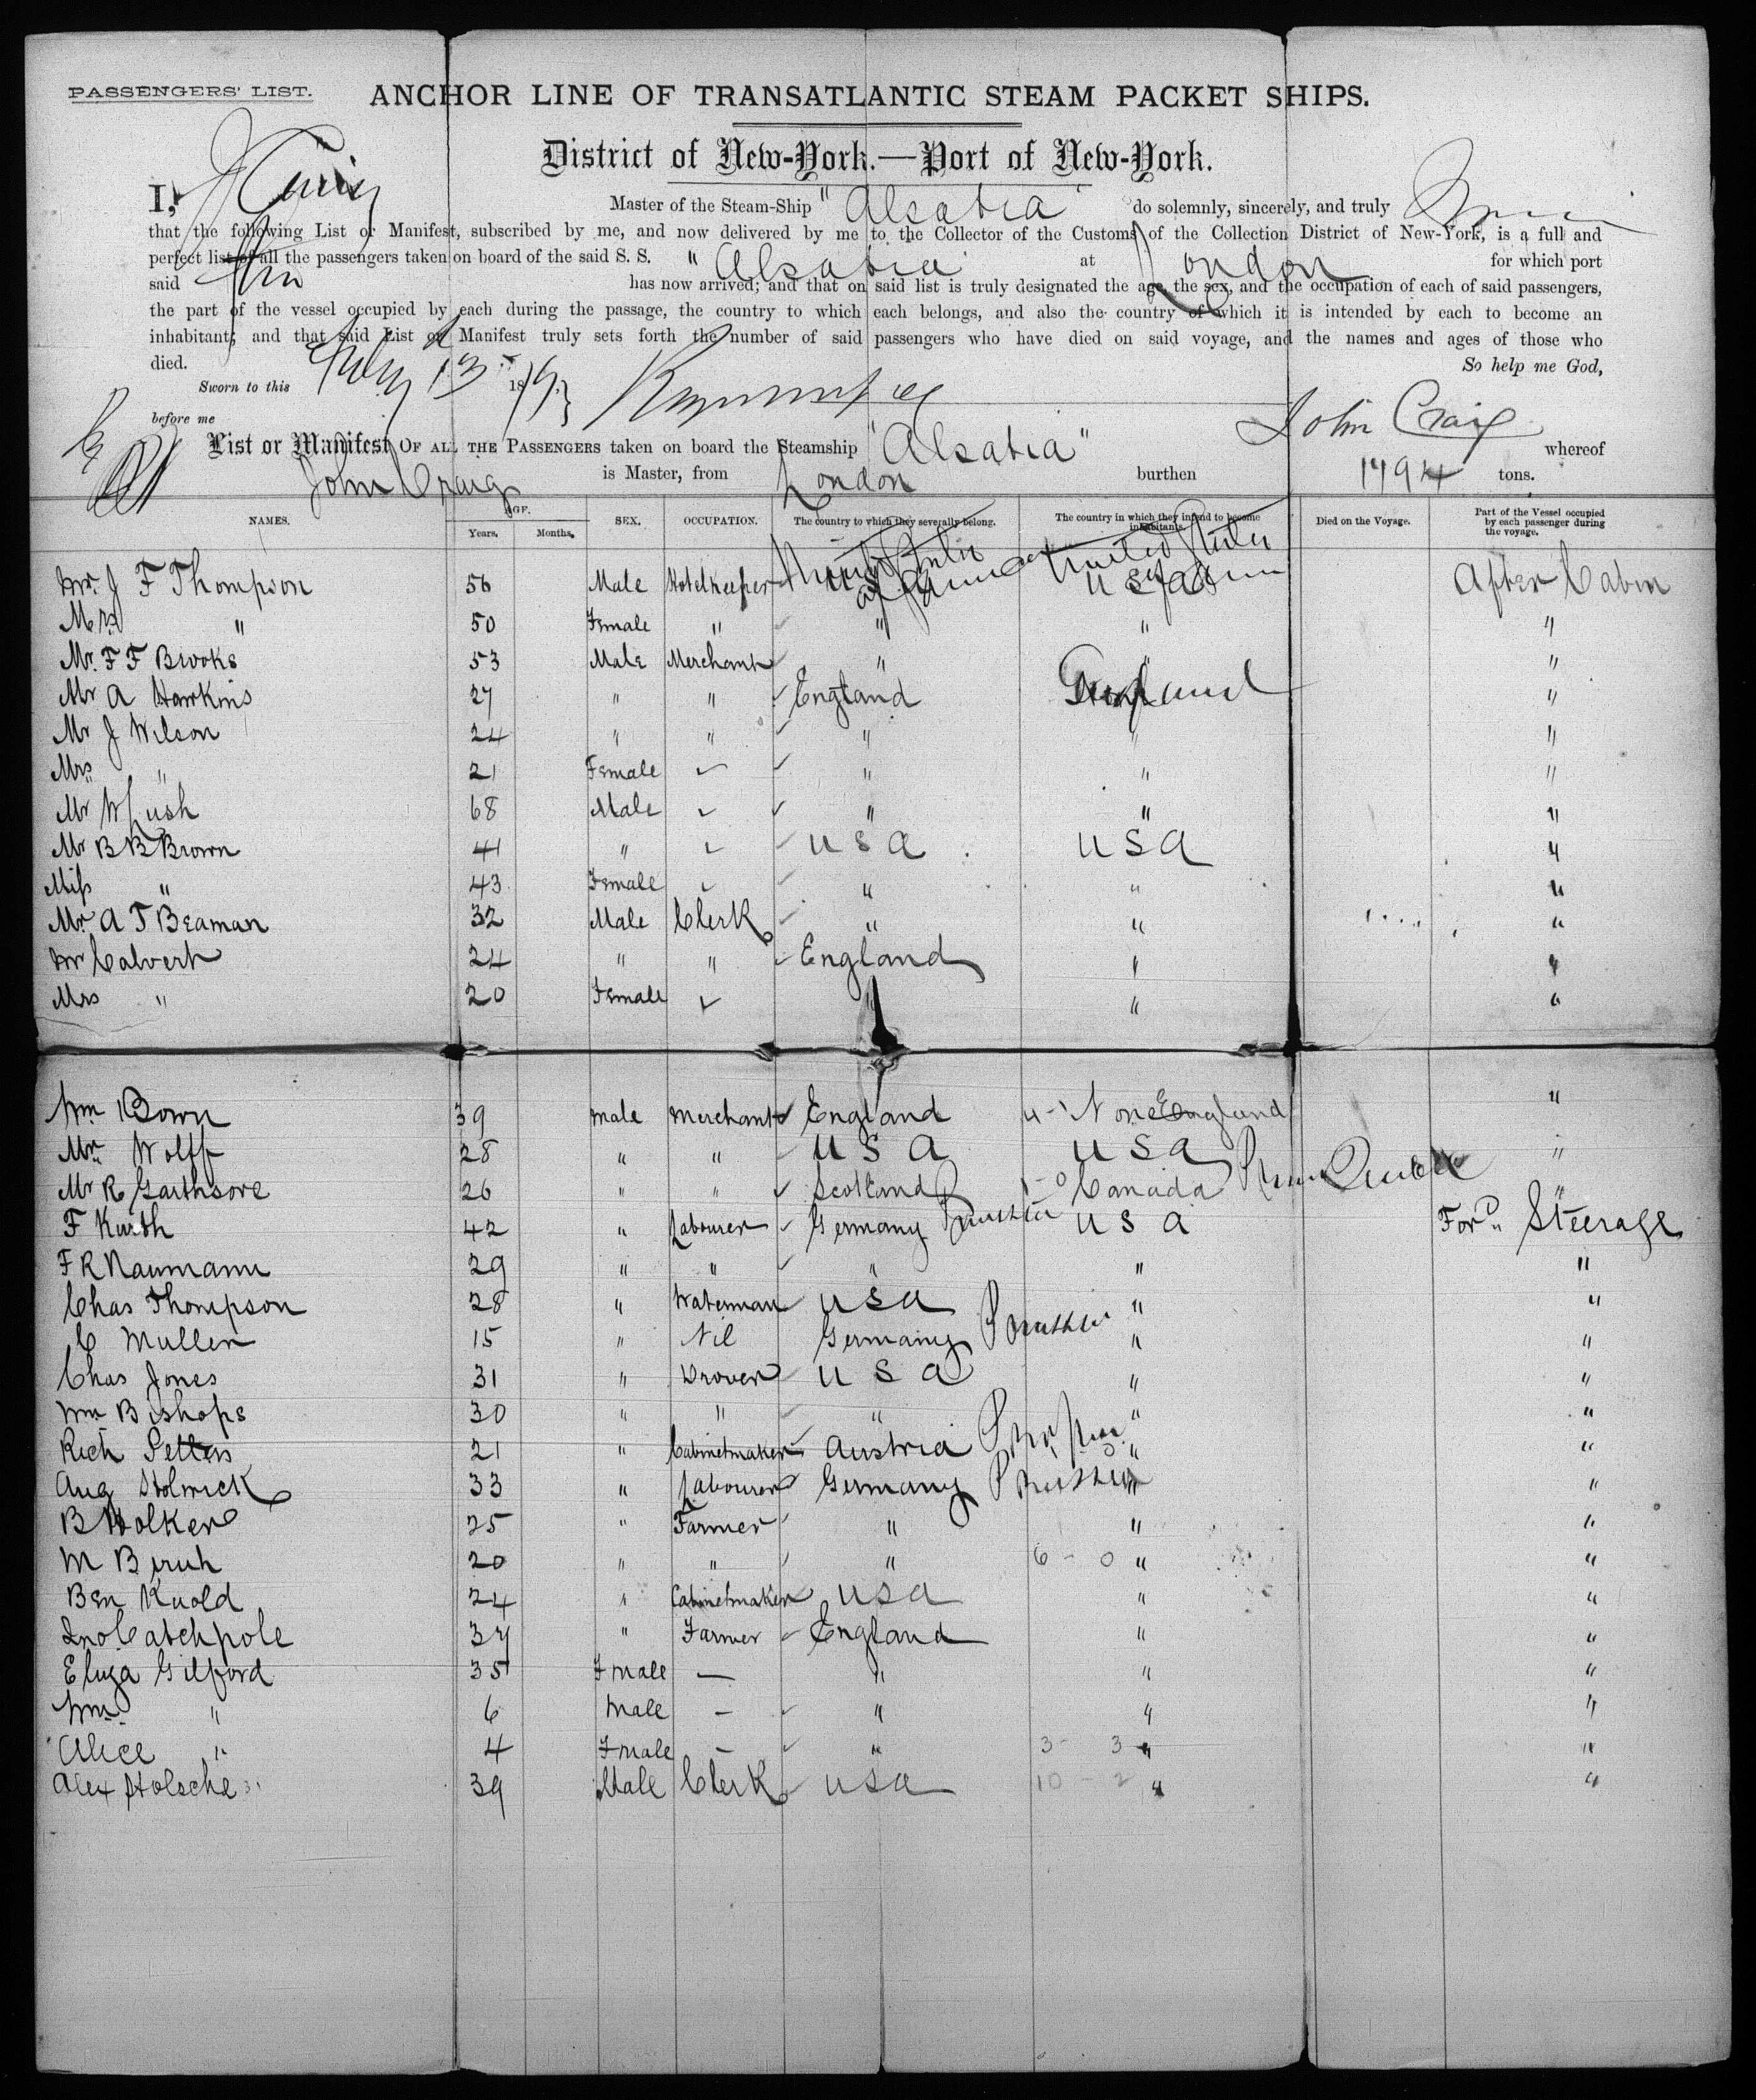 PASSENGERS' LIST.
ANCHOR LINE OF TRANSATLANTIC STEAM PACKET SHIPS.
District of New-York.—Port of New-York.
I, J Craig Master of the Steam-Ship "Alsatia" do solemnly, sincerely, and truly
that the following List or Manifest, subscribed by me, and now delivered by me to the Collector of the Customs of the Collection District of New-York, is a full and
perfect list of all the passengers taken on board of the said S. S. "Alsatia at London for which port
said has now arrived; and that on said list is truly designated the age, the sex, and the occupation of each of said passengers,
the part of the vessel occupied by each during the passage, the country to which each belongs, and also the country of which it is intended by each to become an
inhabitant; and that said List or Manifest truly sets forth the number of said passengers who have died on said voyage, and the names and ages of those who
died. So help me God,
Sworn to this 13 18
before me John Craig
List or Manifest OF ALL THE PASSENGERS taken on board the Steamship "Alsatia" whereof
John Craig is Master, from London burthen 1794 tons.
NAMES. AGE. Years. Months. SEX. OCCUPATION. The country to which they severally belong. The country in which they intend to become inhabitants. Died on the Voyage. Part of the Vessel occupied by each passenger during the voyage.
Mr. J F Thompson 56 Male Hotelkeeper USA After Cabin
Mrs " 50 Female " " " "
Mr. F F Brooks 53 Male Merchant " " "
Mr A Hawkins 27 " " England "
Mr J Wilson 24 " " " " "
Mrs " 21 Female " " "
Mr W Lush 68 Male " " "
Mr B B Brown 41 " USA USA "
Miss " 43 Female " " "
Mr A T Beaman 32 Male Clerk " " "
Mr Calvert 24 " " England " "
Mrs " 20 Female " " "
Wm Bown 39 Male Merchant England None England "
Mr Wolff 28 " " USA USA "
Mr R Garthsore 26 " " Scotland Canada "
F Kurth 42 " Labourer Germany Prussia USA Ford Steerage
F R Naumann 29 " " " " "
Chas Thompson 28 " Waterman USA " "
C Mullen 15 " Nil Germany Prussia " "
Chas Jones 31 " Drover USA " "
Wm Bishops 30 " " " " "
Rich Setters 21 " Cabinetmaker Austria " "
Aug Stolwick 33 " Labourer Germany Prussia " "
B Holker 25 " Farmer " " "
M Biruh 20 " " " 6 - 0 " "
Ben Kuold 24 " Cabinetmaker USA " "
Jno Catchpole 37 " Farmer England " "
Eliza Gilford 35 Fmale — " " "
Wm " 6 Male — " " "
Alice " 4 Fmale — " 3 - 3 " "
Alex Holsche 39 Male Clerk USA 10 - 2 " "